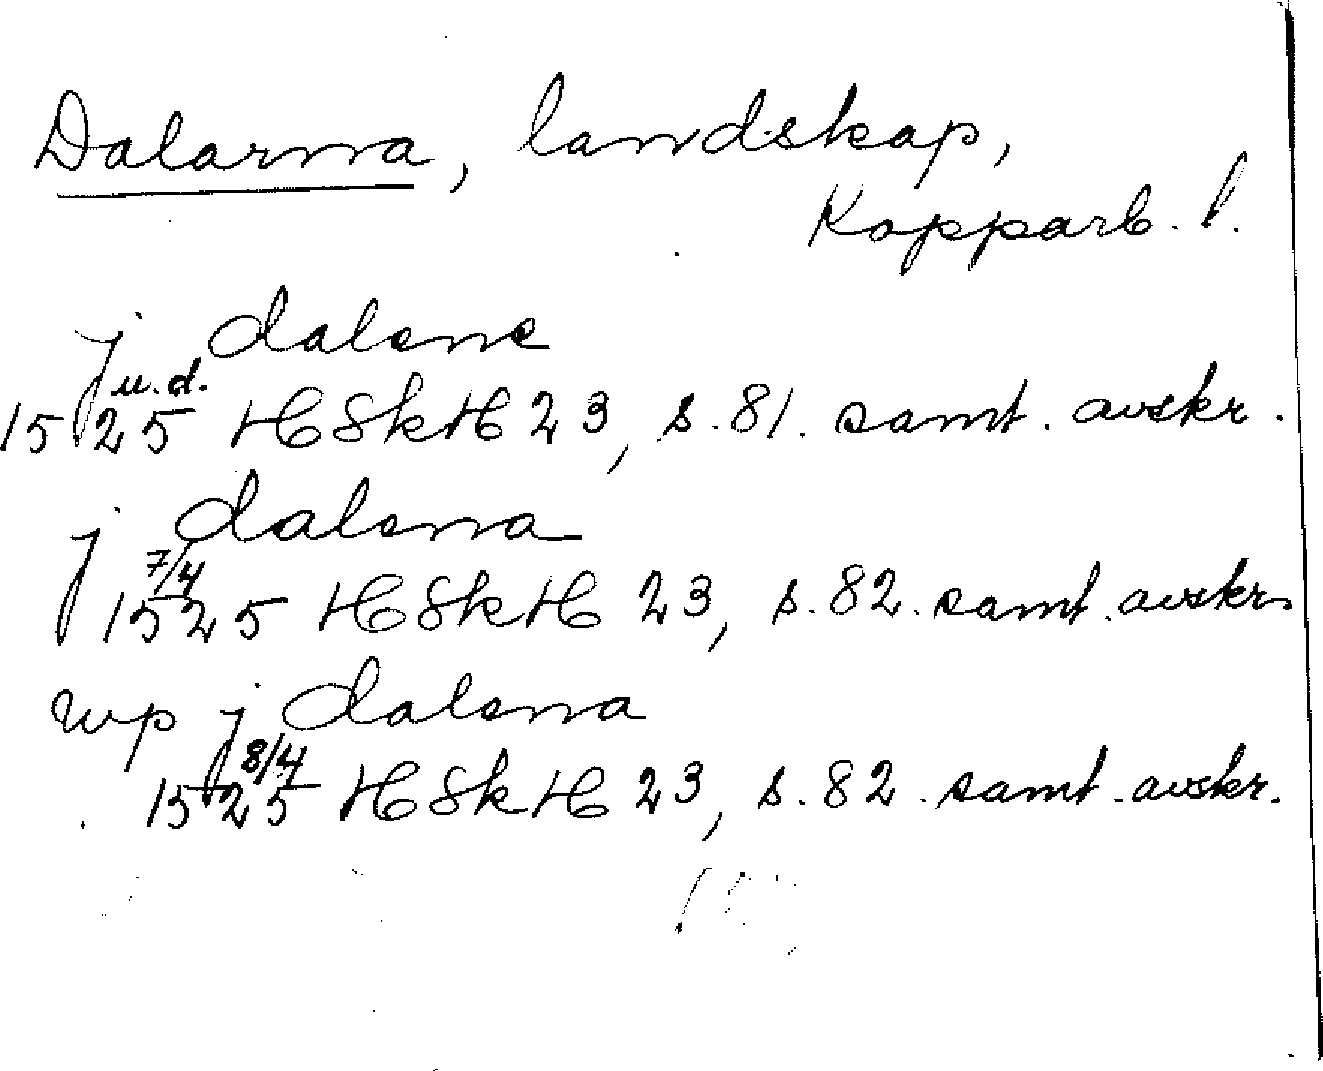 Dalarna, landskap,
Kopparb. l.
j dalene
u.d.
1525 HSkH 23, s. 81. samt. avskr.
j dalena
7/4
1525 HSkH 23, s. 82. samt. avskr.
wp j dalena
8/4
1525 HSkH 23, s. 82. samt. avskr.